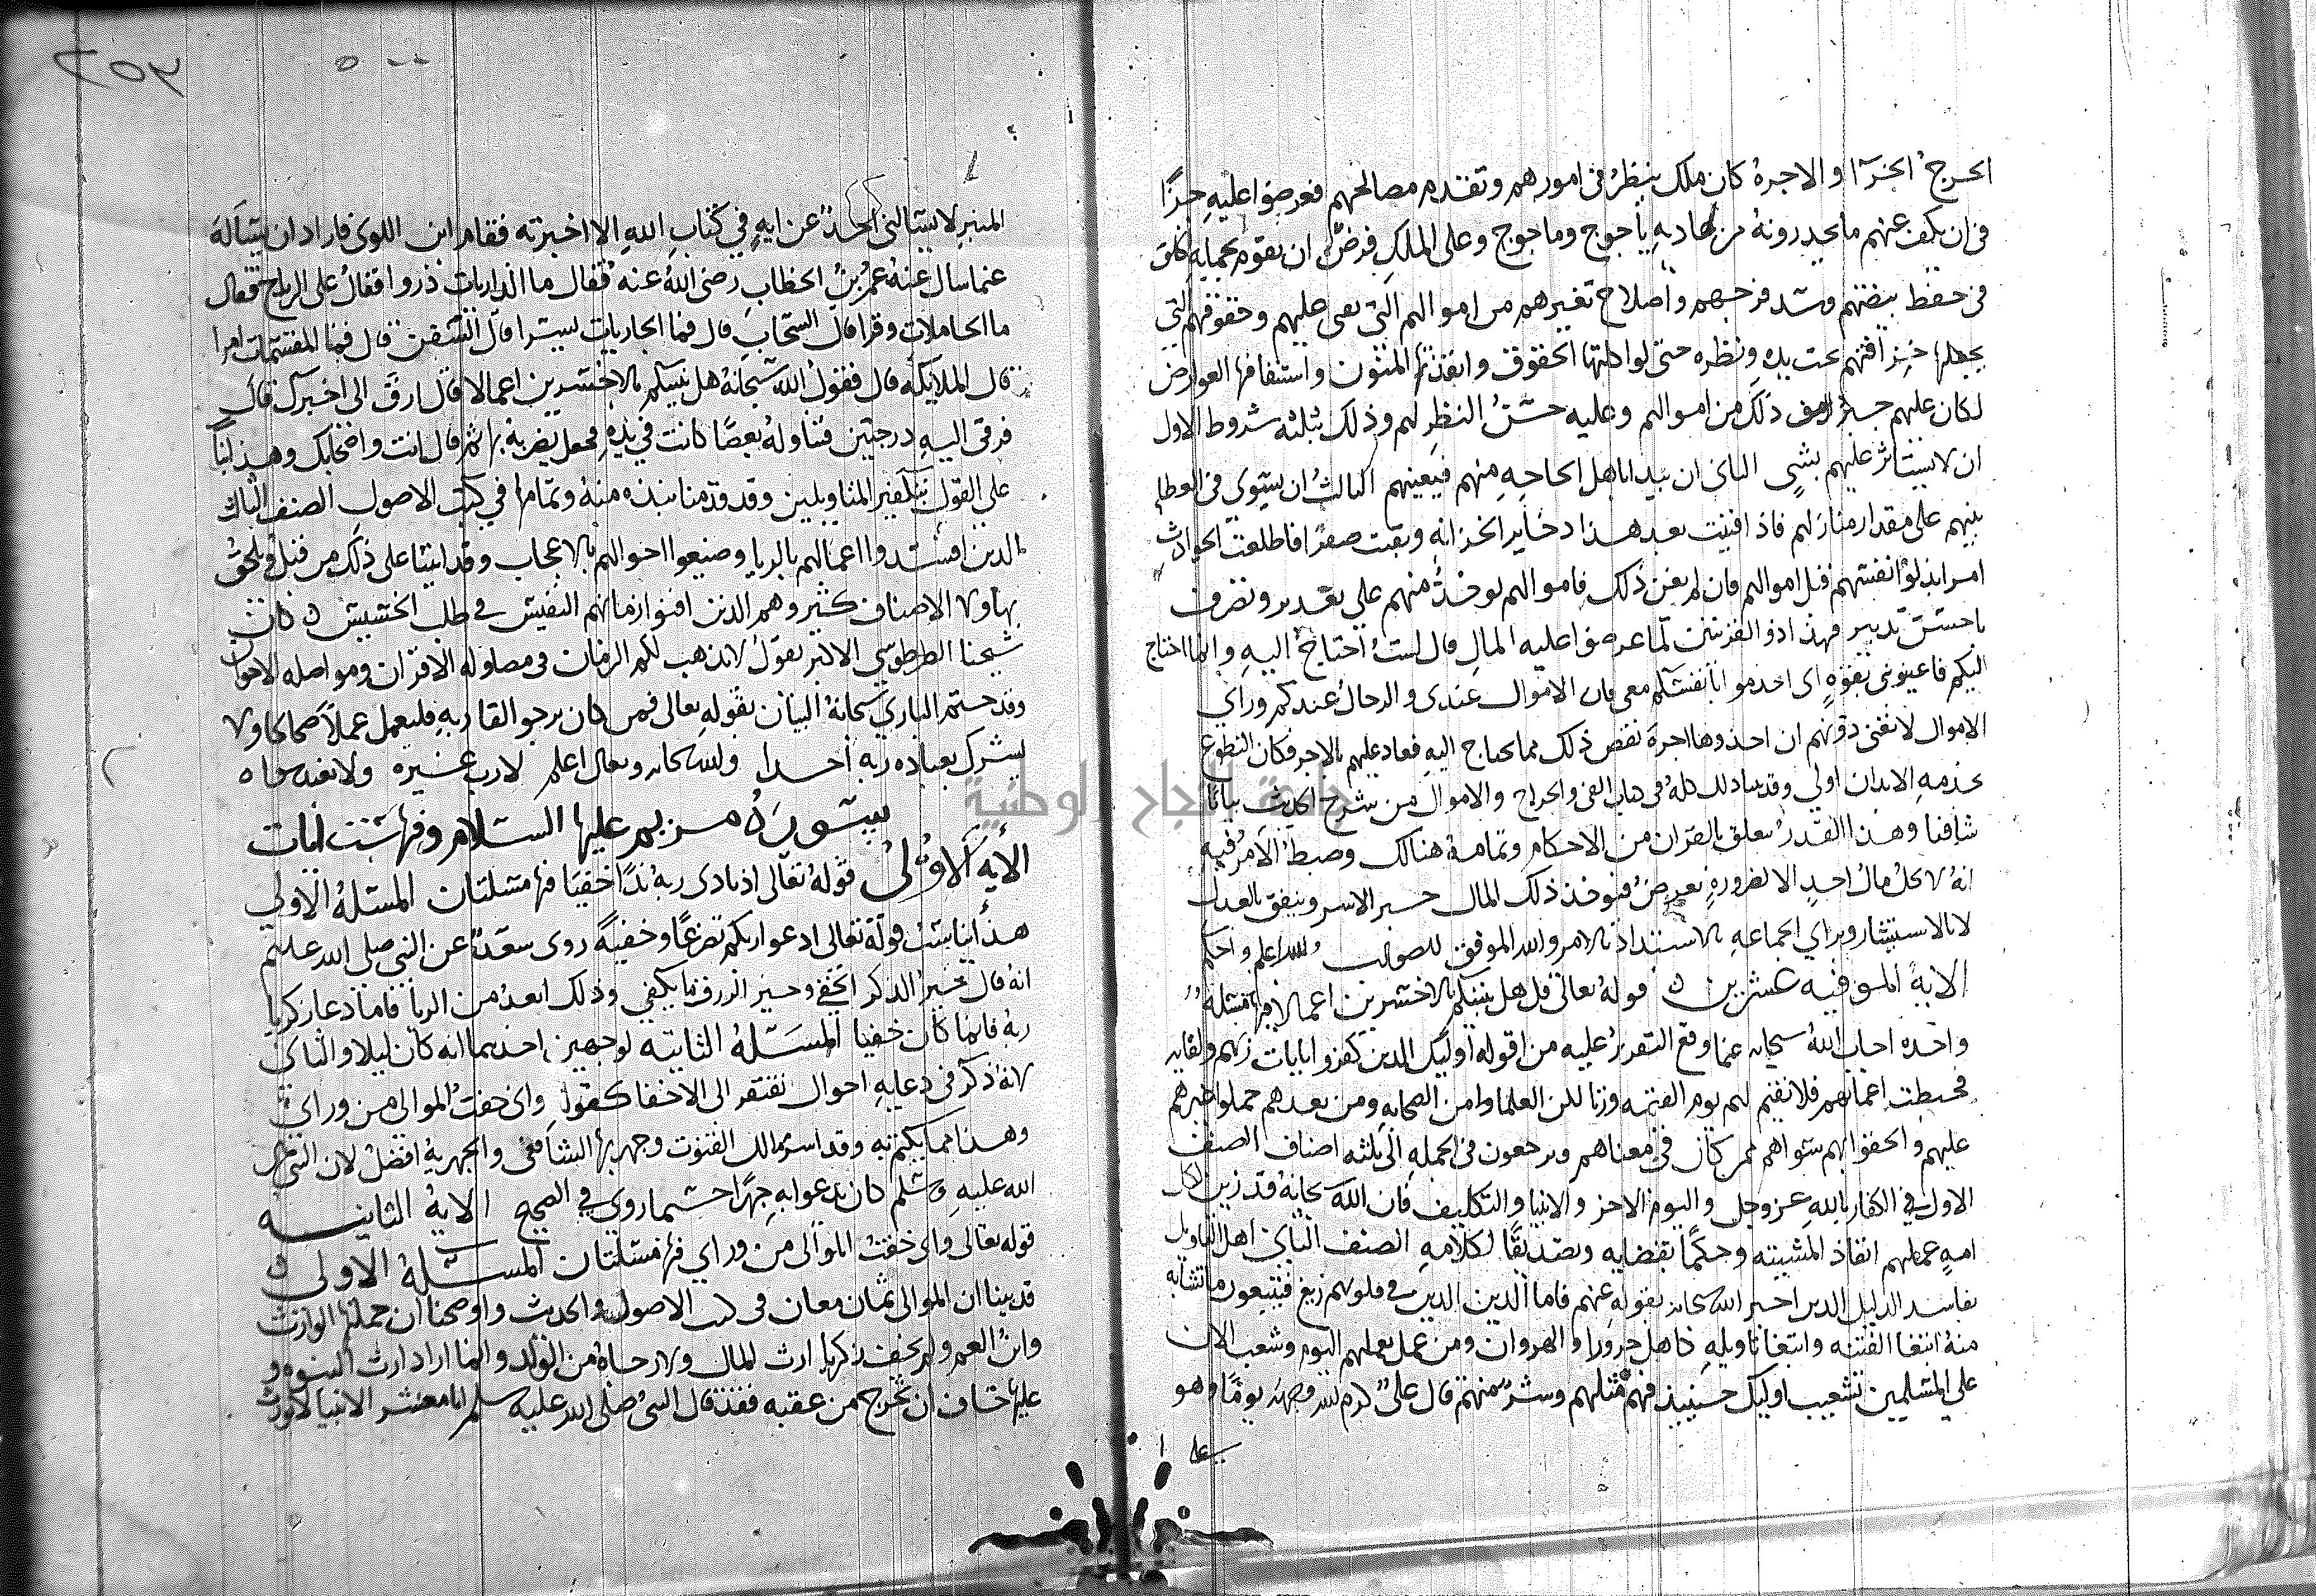 الخرج الجزآ والاجرة كان ملك ينظر فى امورهم وتقدم مصالحهم فعرضوا عليه جزآ
فى ان يكف عنهم ما يحدرونه من عاديه ياجوج وماجوج وعلى الملك فرض ان يقوم بحمايه الخلق
فى حفظ بيضتهم وسد فرجهم واصلاح ثغيرهم من اموالهم التى تفى عليهم وحقوقهم التى
يجمعها خزانتهم تحت يده ونظره حتى لو اكلتها الحقوق وانفذتها المئون واستنفا فها العوارض
لكان عليهم جبر ذلك من اموالهم وعليه حسن النظر لهم وذلك بثلثه شروط الاول
ان لا يستاثر عليهم بشى الثانى ان يبدا باهل الحاجه منهم فيعينهم الثالث ان يسوى فى العطا
بينهم على مقدار منازلهم فاذا فنيت بعد هذا دخاير الخزانه وبقت صفرا فاطلعت الحوادث
امرا بذلوا انفسهم قبل اموالهم فان لم يغن ذلك فاموالهم توخذ منهم على تقدير وتصرف
باحسن تدبير فهذا ذو القرنين لما عرضوا عليه المال قال لست احتاج اليه وانما احتاج
اليكم فاعينونى بقوه اى اخدموا بانفسكم معى فان الاموال عندى والرجال عندكم وراى
الاموال لا تغنى دونهم ان اخذوها اجرة نقص ذلك مما يحتاج اليه فعاد عليهم بالاجر فكان التطوع
بخدمه الابدان اولى وقد بينا ذلك كله فى كتاب الفى والخراج والاموال من شرح الحديث بيانا
شافيا وهذا القدر يتعلق بالقران من الاحكام وتمامه هنالك وضبط الامر فيه
انه لا يحل مال احد الا لضروره تعرض فيوخذ ذلك المال جهرا لا سرا وينفق بالعدل
لا بالاستيثار وبراى الجماعه لا بالاستبداد بالامر والله الموفق للصواب والله اعلم واحكم
الاية الموفيه عشرين قوله تعالى قل هل ننبئكم بالاخسرين اعمالا فيها مسئلة
واحده اجاب الله سبحانه عما وقع التقرير عليه من قوله اوليك الدين كفروا بايات ربهم ولقايه
فحبطت اعمالهم فلا نقيم لهم يوم القيمه وزنا لكن العلما وامن الصحابه ومن بعدهم حملوا غيرهم
عليهم والحقوا بهم سواهم ممن كان فى معناهم ويرجعون فى الجمله الى ثلثه اصناف الصنف
الاول فى الكفار بالله عز وجل واليوم الاخر والانبيا والتكليف فان الله سبحانه قد زين لكل
امه عملهم انفاذ المشيته وحكما بقضايه وتصديقا لكلامه الصنف الثانى اهل التاويل
بفاسد الدليل الدين اخبر الله سبحانه بقوله عنهم فاما الدين فى قلوبهم زيغ فيتبعون ما تشابه
منه ابتغا الفتنه وابتغا تاويله كاهل حرورا والنهروان ومن عمل بعملهم اليوم وشعب الان
على المسلمين تشعيب اوليك حينيذ فهم مثلهم وشر منهم قال على كرم الله وجهه يوما وهو
على
المنبر لا يسالنى احد عن ايه فى كتاب الله الا اخبرته فقام ابن الكوى فاراد ان يساله
عما سال عنه عمر بن الخطاب رضى الله عنه فقال ما الذاريات ذروا فقال على الرياح فقال
ما الحاملات وقرا قال السحاب قال فما الجاريات يسرا قال السفن قال فما المقسمات امرا
قال الملايكه قال فقول الله سبحانه هل ننبيكم بالاخسرين اعمالا قال ارق الى اخبرك قال
فرقى اليه درجتين فتناوله بعصا كانت فى يده فجعل يضربه بها ثم قال انت واصحابك وهذا بنا
على القول بتكفير المتاولين وقد قدمنا نبذه منه وتمامها فى كتب الاصول الصنف الثالث
الدين افسدوا اعمالهم بالريا وضيعوا احوالهم بالاعجاب وقد اتينا على ذلك من قبل ويلحق
بهاولا الاصناف كثير وهم الذين افنوا زمانهم النفيس فى طلب الخسيس كان
شيخنا الطرطوسى الاكبر يقول لا تذهب لكم الزمان فى مصاوله الاقران ومواصله الاخوان
وقد ختم البارى سبحانه البيان بقوله تعالى فمن كان يرجو لقا ربه فليعمل عملا صالحا ولا
يشرك بعباده ربه احدا والله سبحانه وتعالى اعلم لا رب غيره ولا نعبد سواه
سورة مريم عليها السلام وفيها ست ايات
الايه الاولى قوله تعالى اذ نادى ربه ندآ خفيا فيها مسئلتان المسئلة الاولى
هذا يناسب قوله تعالى ادعوا ربكم تضرعا وخفية روى سعد عن النبى صلى الله عليه وسلم
انه قال خير الذكر الخفى وخير الرزق ما يكفى وذلك ابعد من الريا فاما دعا زكريا
ربه فانما كان خفيا المسئلة الثانيه لوجهين احدهما انه كان ليلا والثانى
لانه ذكر فى دعايه احوال تفتقر الى الاخفا كقوله وانى خفت الموالى من وراى
وهذا مما يكتم به وقد اسر مالك القنوت وجهر بها الشافعى والجهر به افضل لان النبى صلى
الله عليه وسلم كان يدعوا به جهرا حسبما روى فى الصحيح الاية الثانيه
قوله تعالى وانى خفت الموالى من وراى فيها مسئلتان المسئلة الاولى
قد بينا ان الموالى ثمان معان فى كتب الاصول والحديث واوضحنا ان من جملتها الوارث
وابن العم ولم يخف زكريا ارث المال ولا رجاه من الولد وانما اراد ارث النبوه و
عليها خاف ان تخرج من عقبه فقد قال النبى صلى الله عليه وسلم انا معشر الانبيا لا نورث